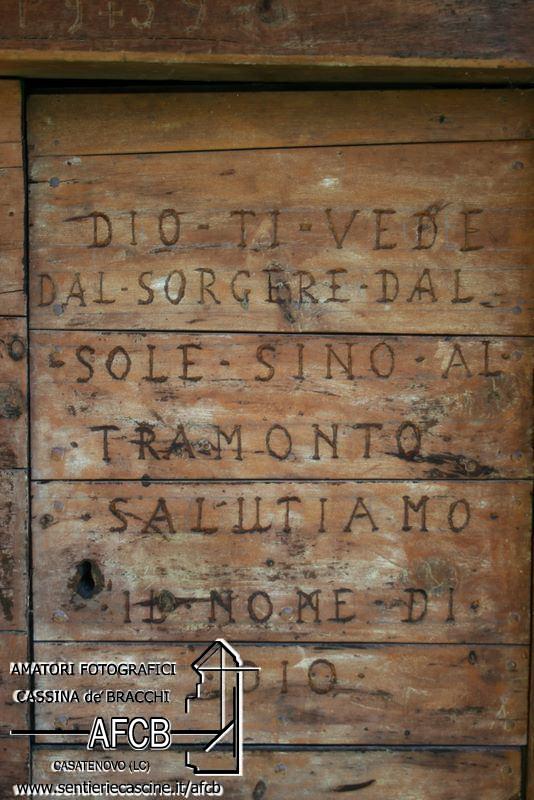 DIO-TI-VEDE
DAL-SORGERE-DAL
-SOLE-SINO-AL
-TRAMONTO-
-SALUTIAMO-
-IL-NOME-DI-
DIO-
AMATORI FOTOGRAFICI
CASSINA de' BRACCHI
AFCB
CASATENOVO (LC)
www.sentieriecascine.it/afcb